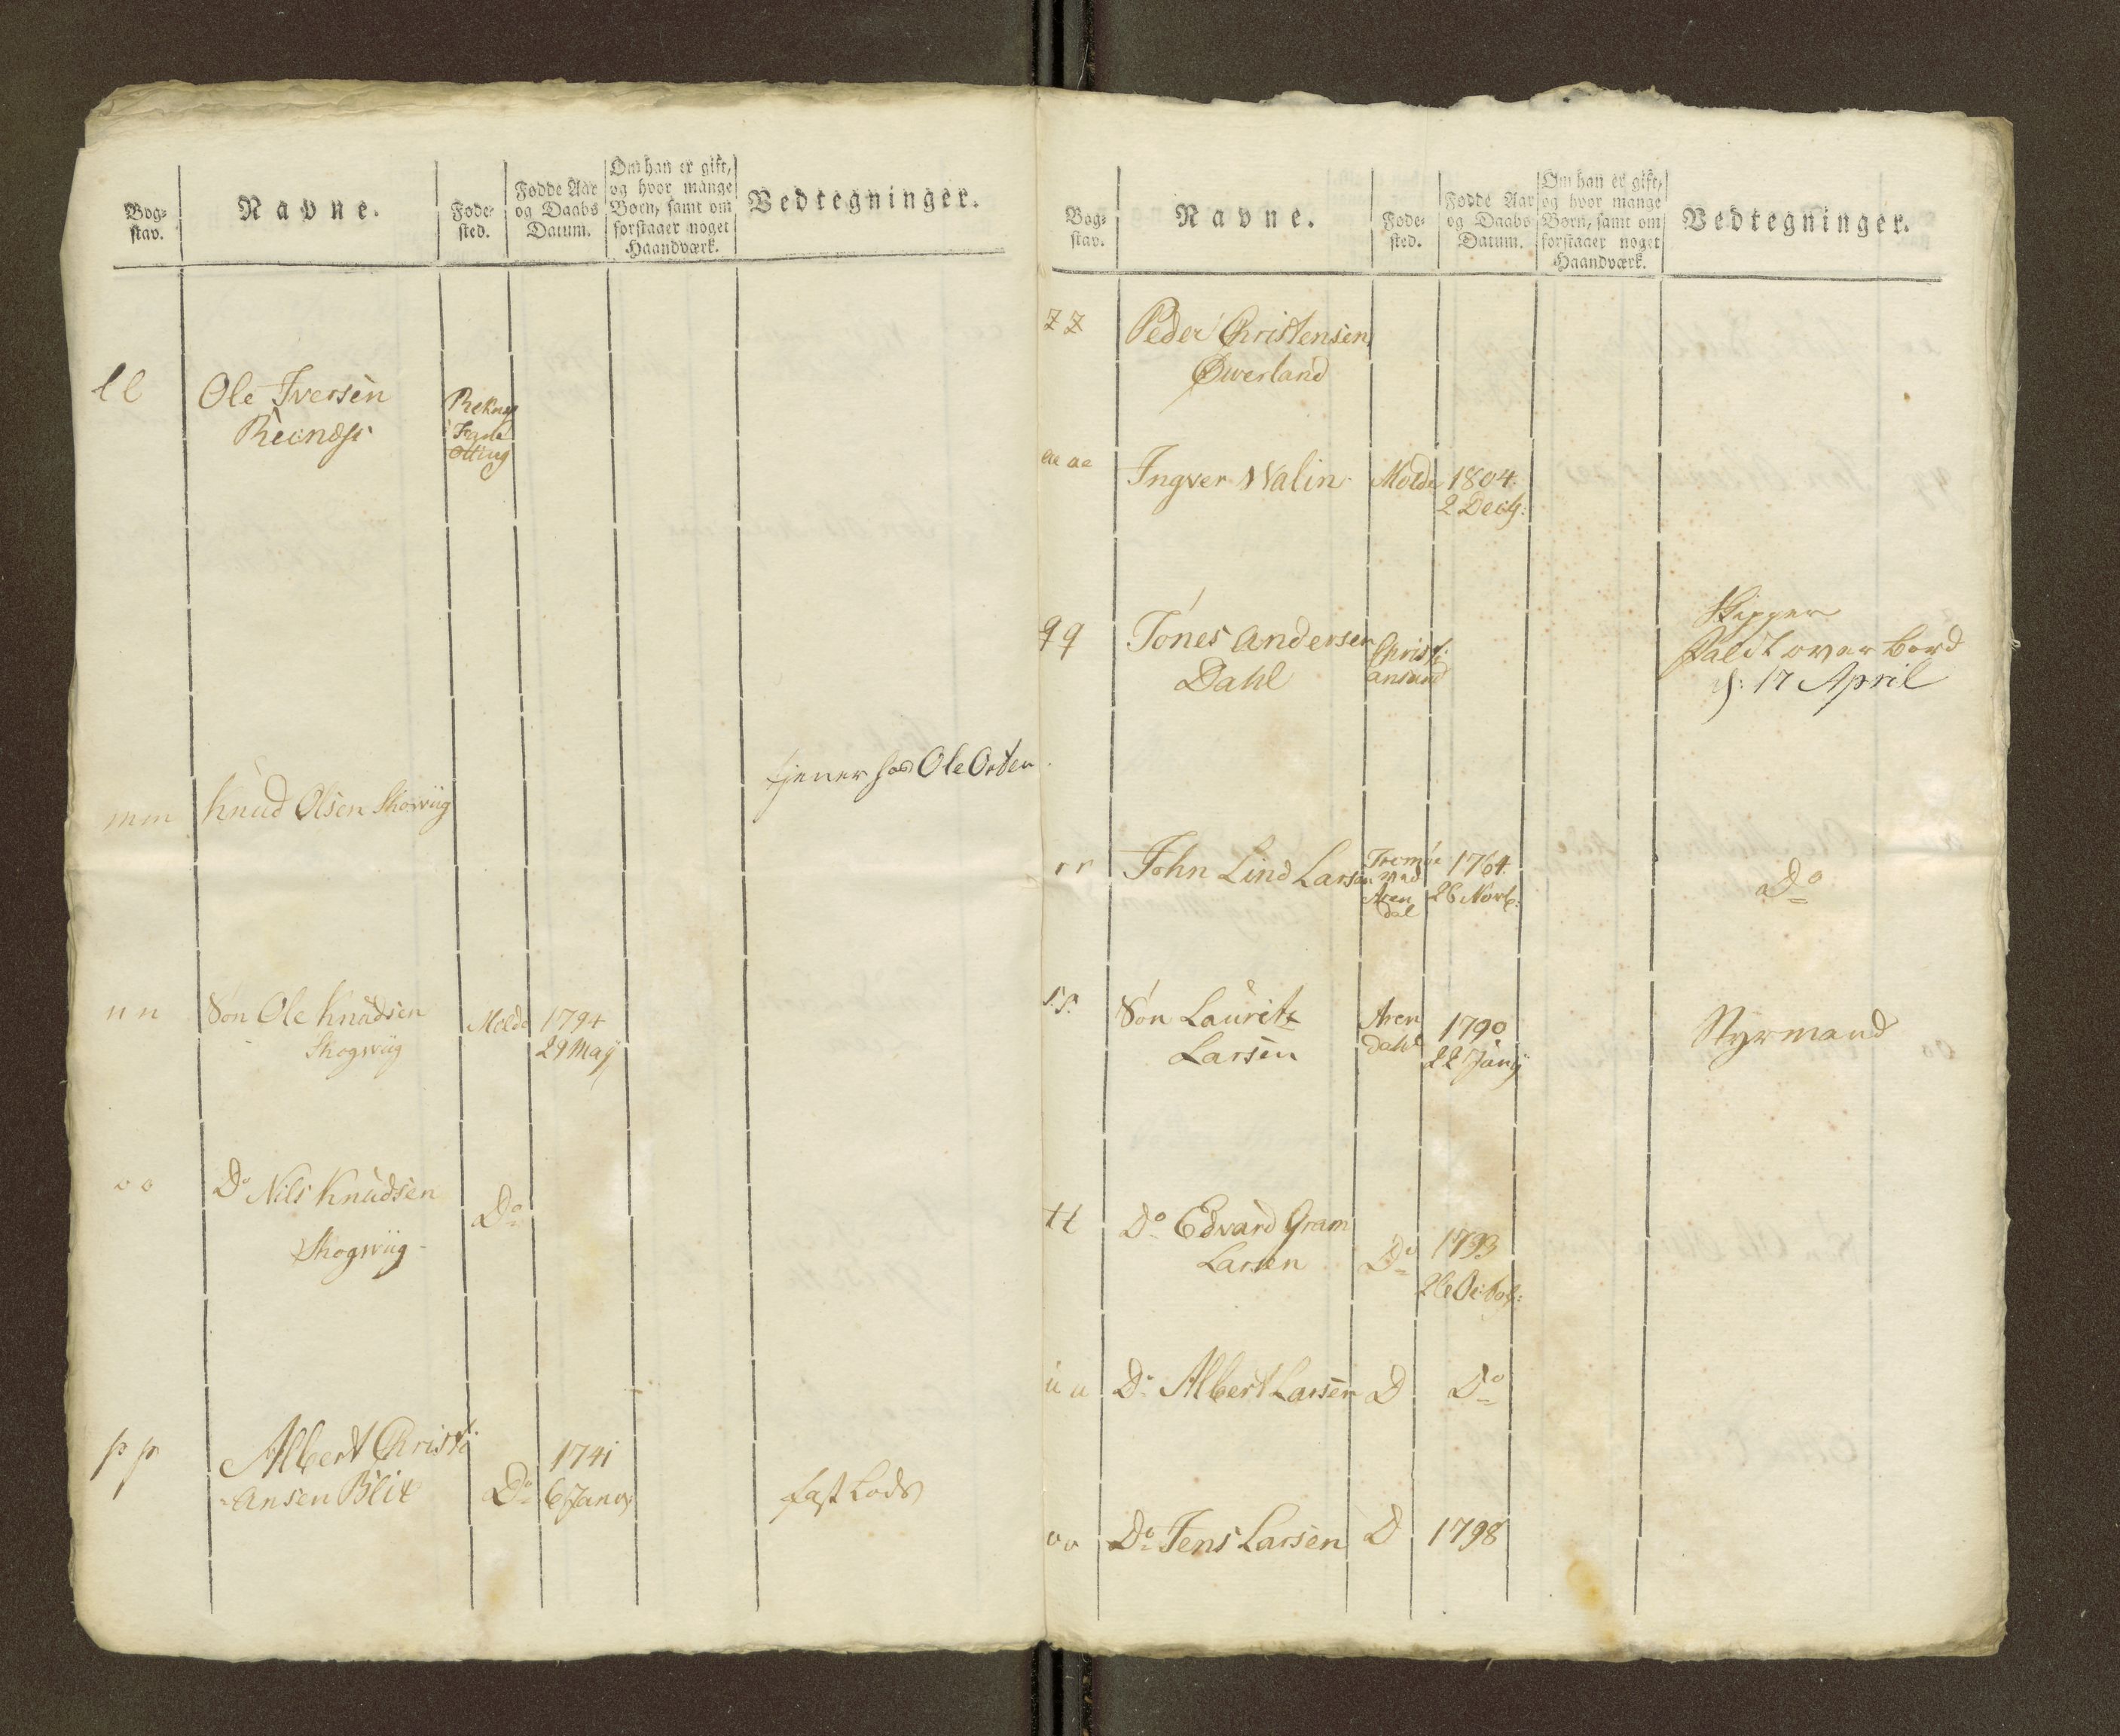 Bog-
stav.
Navne.
Føde-
sted.
Fødde Aar
og Daabs
Datum.
Om han er gift,
og hvor mange
Børn, samt om
forstaaer noget
Haandværk.
Vedtegninger.
ll
Ole Iversen
mm
Knud Olsen Skogviig
tjener hos Ole Orten
nn
Søn Ole Knudsen
Skogviig
Molde
1794
29 Maÿ
oo
Do Nils Knudsen
Skogviig
Do
pp
Albert Christi
ansen Blix
Do
1741
6 Janv
fast Lods
Bog-
stav.
Navne.
Føde-
sted.
Fødde Aar
og Daabs
Datum.
Om han er gift,
og hvor mange
Børn, samt om
forstaaer noget
Haandværk.
Vedtegninger.
zz
Peder Christensen
Øwerland
æ æ
Ingver Walin
Molde
1804
2 Decb:
qq
Jones Andersen
Dahl
Christi
ansund
Skipper
Faldt over bord
d: 17 April
rr
John Lind Larsen
Tromøe
ved
Aren
dal
1764
26 Novb:
Do
ss
Søn Lauritz
Larsen
Aren
dahl
1790
22 Junÿ
Styrmand
tt
Do Edvard Gram
Larsen
Do
1793
26 Octob:
uu
Do Albert Larsen
D
Do
vv
Do Jens Larsen
D
1798